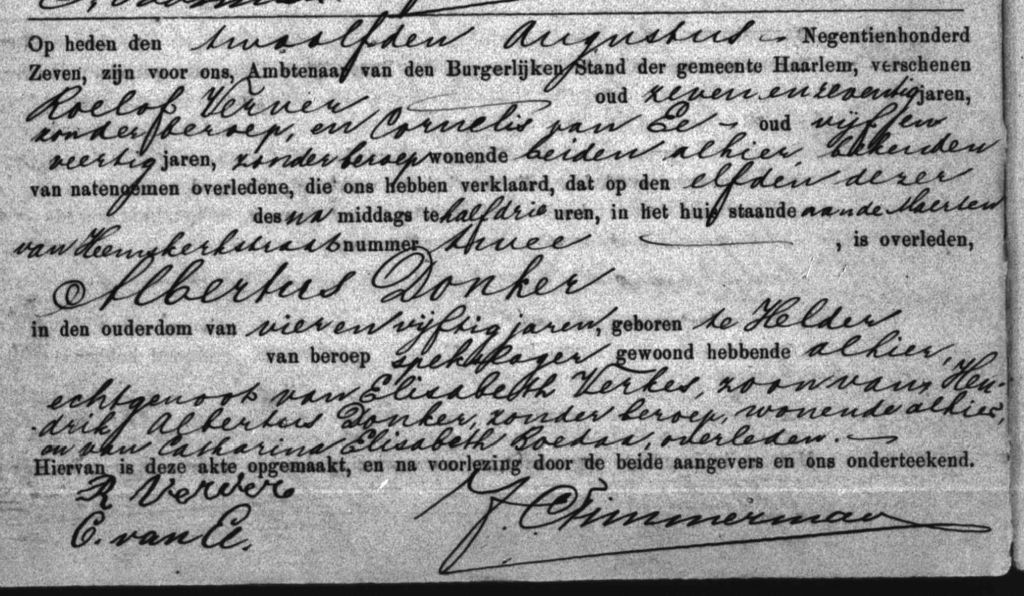 Op heden den twaalfden Augustus Negentienhonderd
Zeven, zijn voor ons, Ambtenaar van den Burgerlijken Stand der gemeente Haarlem, verschenen
Roelof Verver oud zeven en zeventig jaren,
zonder beroep, en Cornelis van Ee oud vijf en
veertig jaren, zonder beroep wonende beiden alhier, bekenden
van natenoemen overledene, die ons hebben verklaard, dat op den elfden dezer
des na middags te half drie uren, in het huis staande aan de Maerten
van Heemskerkstraat nummer twee , is overleden,
Albertus Donker
in den ouderdom van vier en vijftig jaren, geboren te Helder
van beroep spekslager gewoond hebbende alhier,
echtgenoot van Elisabeth Verkes, zoon van Hen-
drik Albertus Donker, zonder beroep, wonende alhier,
en van Catharina Elisabeth overleden.
Hiervan is deze akte opgemaakt, en na voorlezing door de beide aangevers en ons onderteekend.
R Verver
C. van Ee.
J. C Timmerman